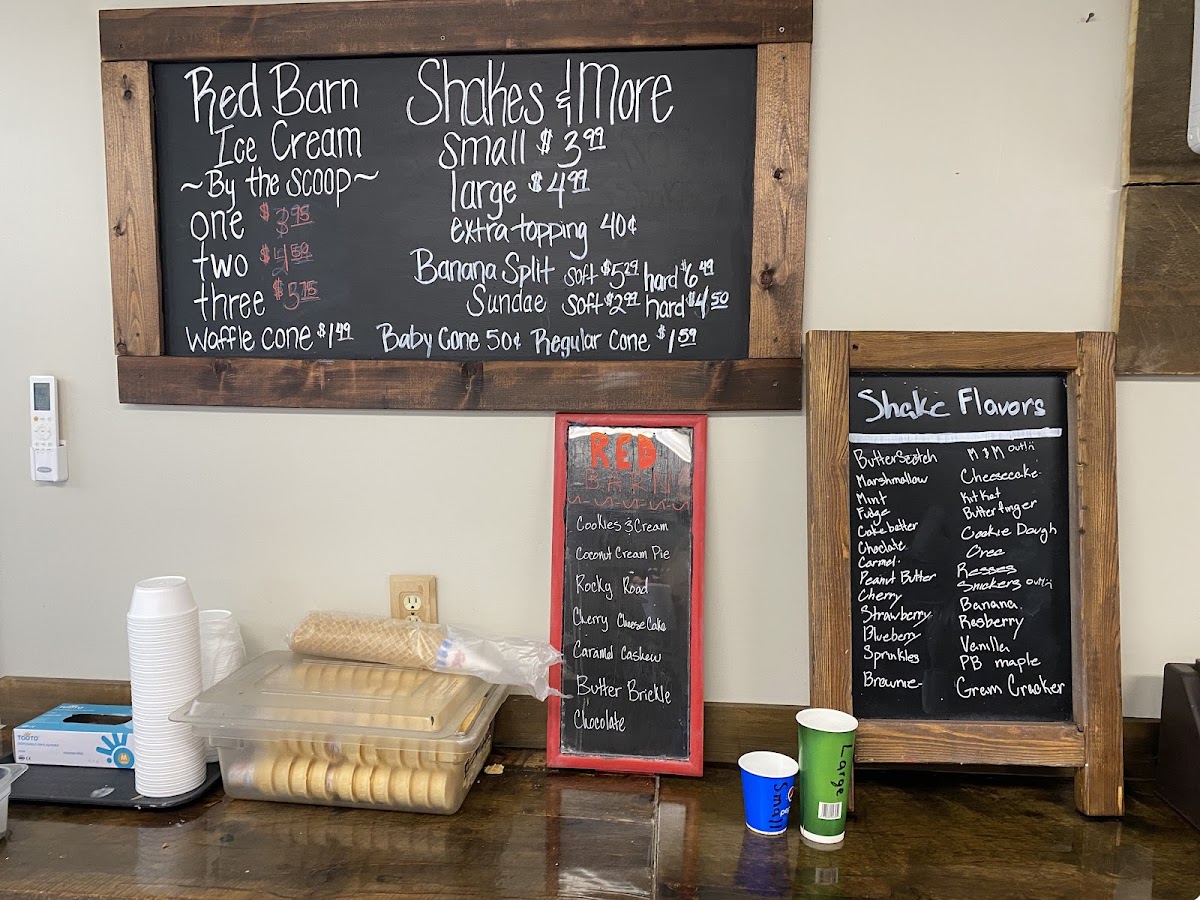 Red Barn
Ice Cream
~By the scoop~
one $3.95
two $4.59
three $5.75
Waffle cone $1.49
Shakes & More
small $3.99
large $4.99
extra topping 40¢
Banana Split soft $5.29 hard $6.49
Sundae soft $2.99 hard $4.50
Baby Cone 50¢ Regular Cone $1.59
RED
BARN
Cookies & Cream
Coconut Cream Pie
Rocky Road
Cherry Cheese Cake
Caramel Cashew
Butter Brickle
Chocolate
Shake Flavors
Butterscotch
Marshmallow
Mint
Fudge
Cake batter
Choclate
Carmel
Peanut Butter
Cherry
Strawberry
Blueberry
Sprinkles
Brownie
M&M out
Cheesecake
Kit Kat
Butterfinger
Cookie Dough
Oreo
Reeses
Snickers out
Banana
Rasberry
Vanilla
PB maple
Gram Cracker
TOOTO
Small
Large